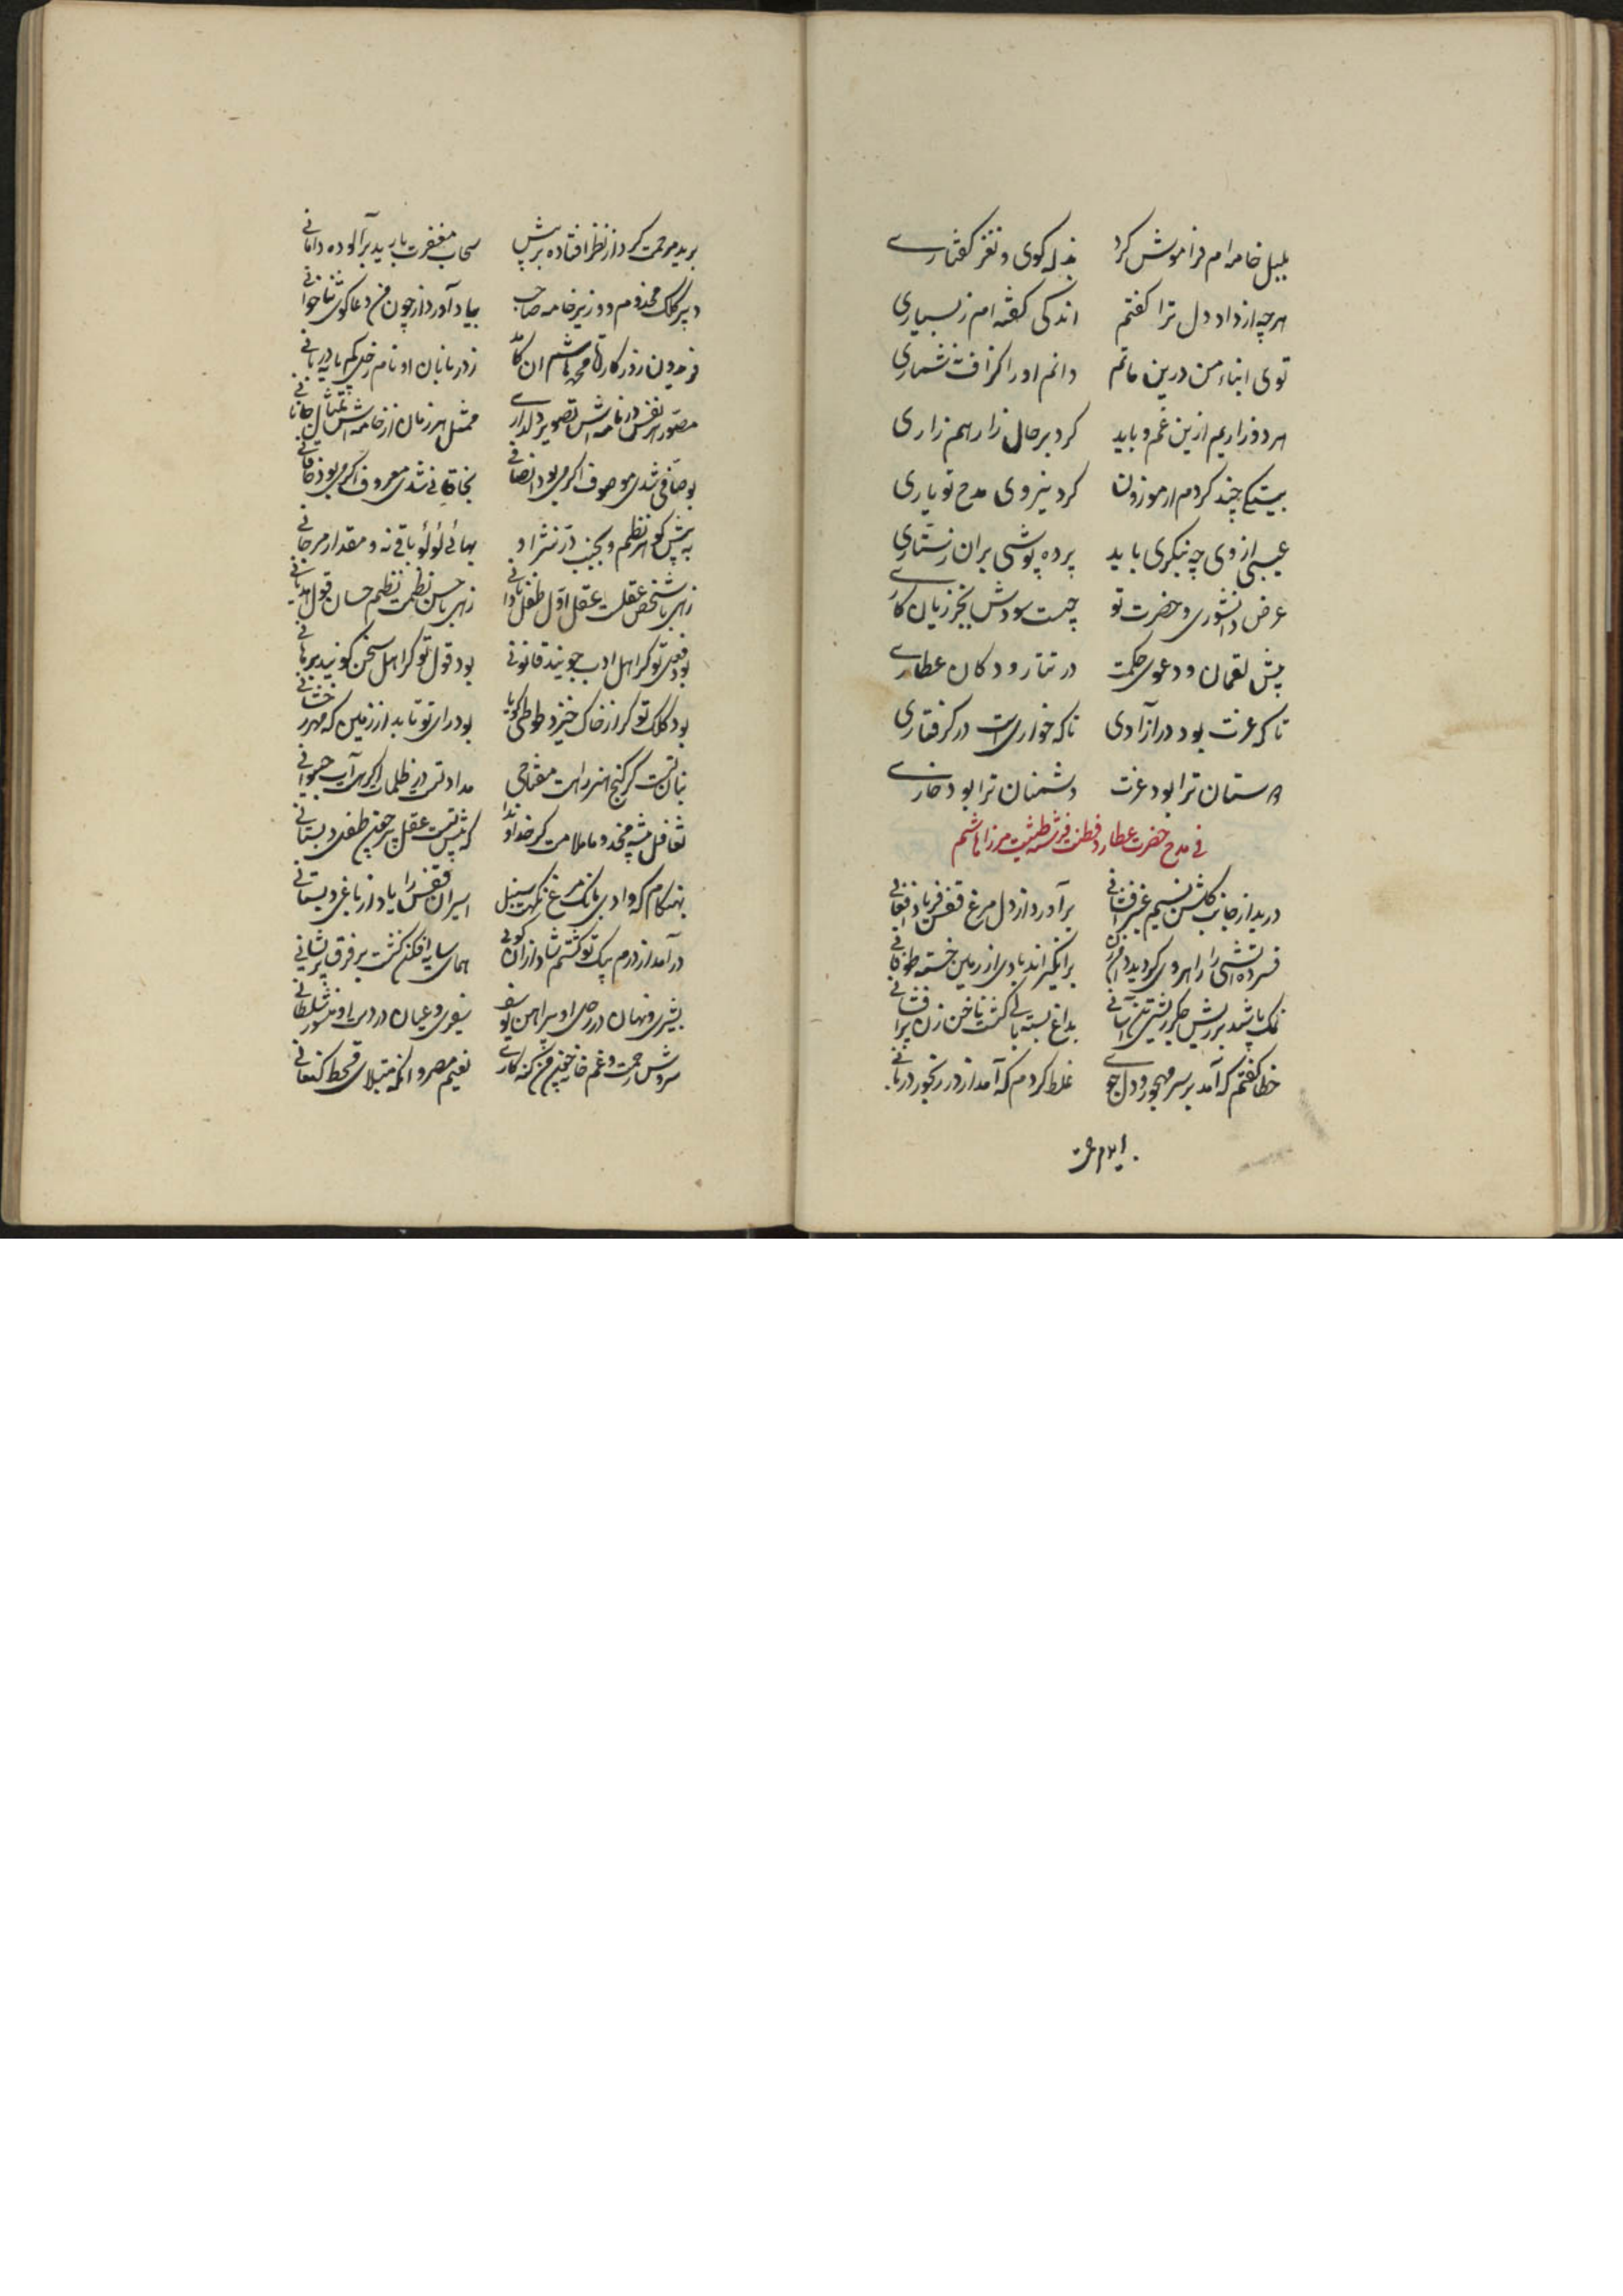 بلبل خامه ام فراموش کرد بذله کوی و نغز کفتارے
هرچه از داد دل ترا کفتم اندکی کفته ام ز بسیاری
توی ابناء من درین ماتم دانم او را کزافت نشماری
هر دو زاریم ازین غم و باید کرد بر حال زار هم زاری
بیتکی چند کردم ار موزون کرد نیروی مدح تو یاری
عیبی از وی چه بنکری باید پرده پوشی بران ز ستاری
عرض دانشوری و حضرت تو چیست سودش بجز زیان کارے
پیش لقمان و دعوی حکمت در تتار و دکان عطارے
تا که عزت بود در آزادی تا که خواریست در کرفتاری
دوستان ترا بود عزت دشمنان ترا بود خوارے
فی مدح حضرت عطارد فطنت فرشته طینت میرزا هاشم
در ید از جانب کلشن نسیم عنبر افشانی برآورد از دل مرغ قفس فریاد افغانی
فسرده آتشی را راهروی کردید دامن زن برانکیزاند بادی از زمین خسته طوفانی
نمک پاشید بر ریش جکر ریشی تن آسانی بداغ بسته بالی کشت ناخن زن پرافشانی
خطا کفتم که آمد بر سر مهجور دلجوے غلط کردم که آمد از در رنجور درمانی
برید مرحمت کرد از نظر افتاده پرسش سحاب مغفرت بارید بر آلوده دامانی
دبیر کلک مخدوم و وزیر خامه صاحب بیاد آورد از چون من دعاکوی ثناخوانی
فریدون زدر کارتا محمد هاشم ان کامد ز دربانان او نام
مصور هر نفس در نامه اش تصویر دلدارے ممثل هر زمان از خامه اش تمثال جانانی
بوصافی شدی موصوف اکر می بود انصافی بخاقانی شدی معروف اکر می بود خاقانی
به پیش کوهر نظم و بجنب در نثر او بهائی لؤلؤ باقی نه و مقدار مرجانی
زهی با شخص عقلت عقل اول طفل نادانی زهی با حسن نظمت نظم حسان قول هذیانی
بود فعل تو کر اهل ادب جویند قانونی بود قول تو کر اهل سخن کویند برهانی
بود کلک تو کر از خاک خیزد طوطی کویا بود رای تو تابد از زمین که مهر رخشانی
بنان تست کر کنج هنر راهست مفتاحی مداد تست در ظلمات اکر هست آب حیوانی
تغافل پیشه مخدوما ملامت کر خداوندا که پیش تست عقل پیر چون طفل دبستانی
بهنکام که وادی بانک مرغ نکهت سنبل اسیران قفس را یاد از باغی و بستانی
درآمد از درم پیک تو کشتم شاد از ان کوئی همای سایه افکن کشت بر فرق پریشانی
بشیری و نهان در رحل او پیراهن یوسف سفیری و عیان در دست او منشور سلطانی
سروش رحمت و غم خانه چون من کنه کارے نعیم مصر و انکه مبتلای قحط کنعانی